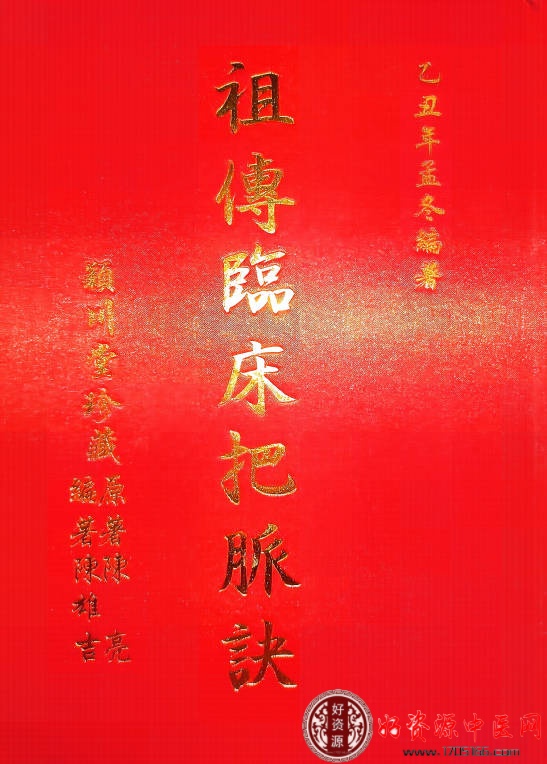 乙丑年孟冬編著
祖傳臨床把脈訣
穎川堂珍藏
原著陳亮
編著陳雄吉
好资源
好资源中医网